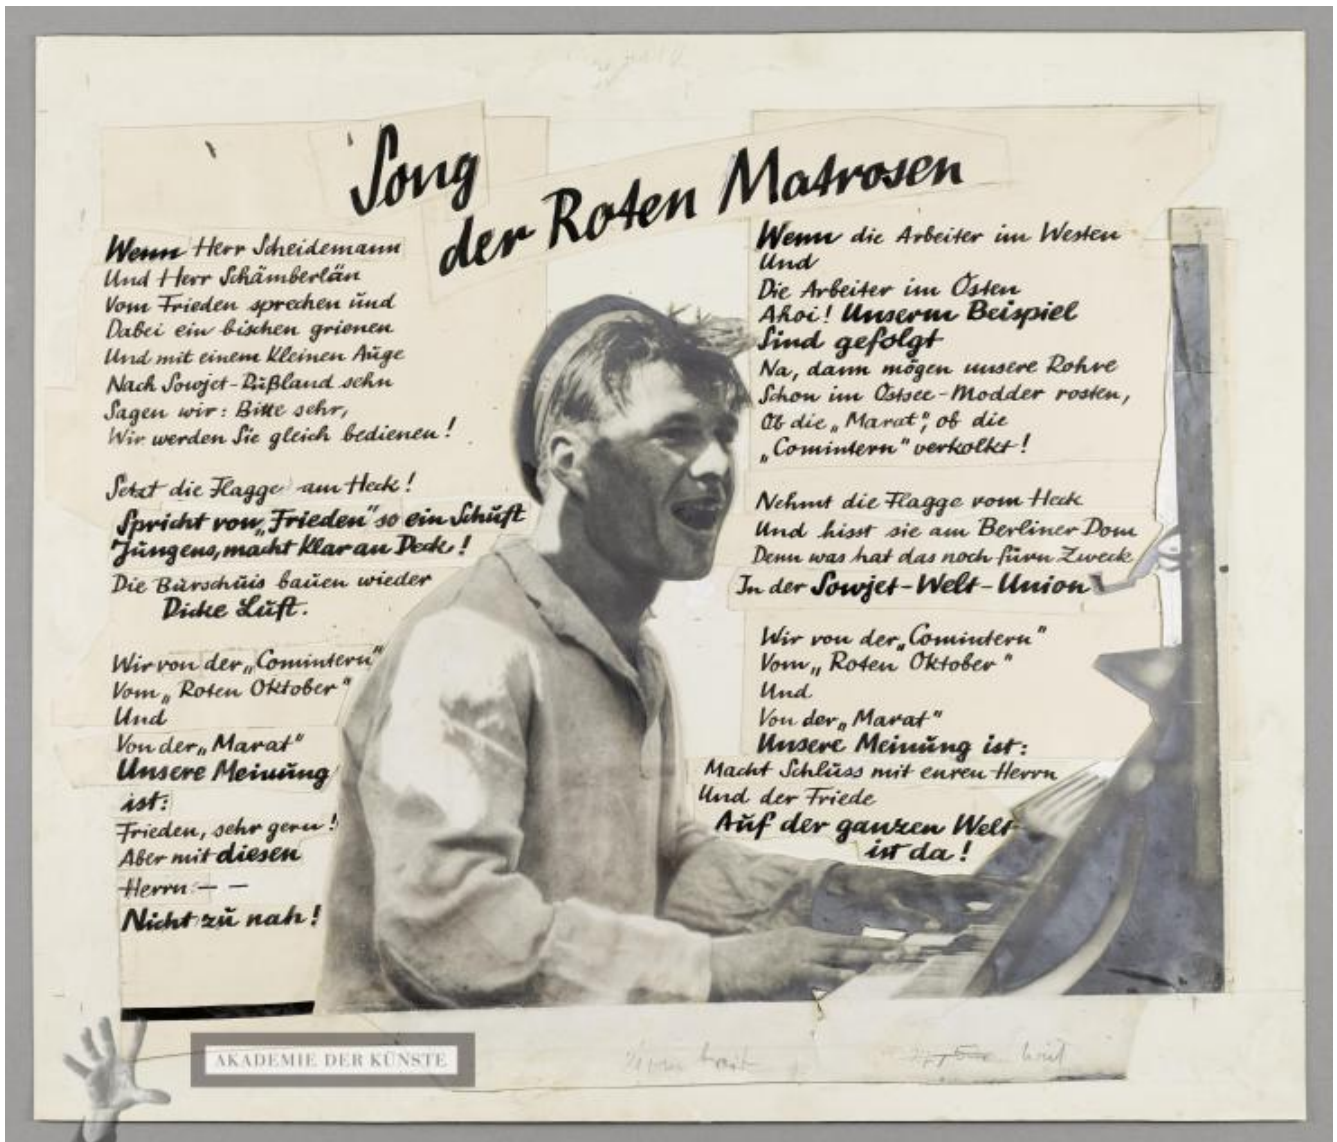 Song
der Roten Matrosen
Wenn Herr Scheidemann
Und Herr Schämberlän
Vom Frieden sprechen und
Dabei ein bischen grienen
Und mit einem kleinen Auge
Nach Sowjet-Rußland sehn
Sagen wir: Bitte sehr,
Wir werden Sie gleich bedienen!
Setzt die Flagge am Heck!
Spricht von „Frieden" so ein Schuft
Jungens, macht klar an Deck!
Die Burschuis bauen wieder
Dicke Luft.
Wir von der „Comintern"
Vom „Roten Oktober"
Und
Von der „Marat"
Unsere Meinung
ist:
Frieden, sehr gern!
Aber mit diesen
Herrn: – –
Nicht zu nah!
Wenn die Arbeiter im Westen
Und
Die Arbeiter im Osten
Ahoi! Unserm Beispiel
Sind gefolgt
Na, dann mögen unsere Rohre
Schon im Ostsee-Modder rosten,
Ob die „Marat", ob die
„Comintern" verkolkt!
Nehmt die Flagge vom Heck
Und hisst sie am Berliner Dom
Denn was hat das noch fürn Zweck
In der Sowjet-Welt-Union
Wir von der „Comintern"
Vom „Roten Oktober"
Und
Von der „Marat"
Unsere Meinung ist:
Macht Schluss mit euren Herrn
Und der Friede
Auf der ganzen Welt
ist da!
AKADEMIE DER KÜNSTE